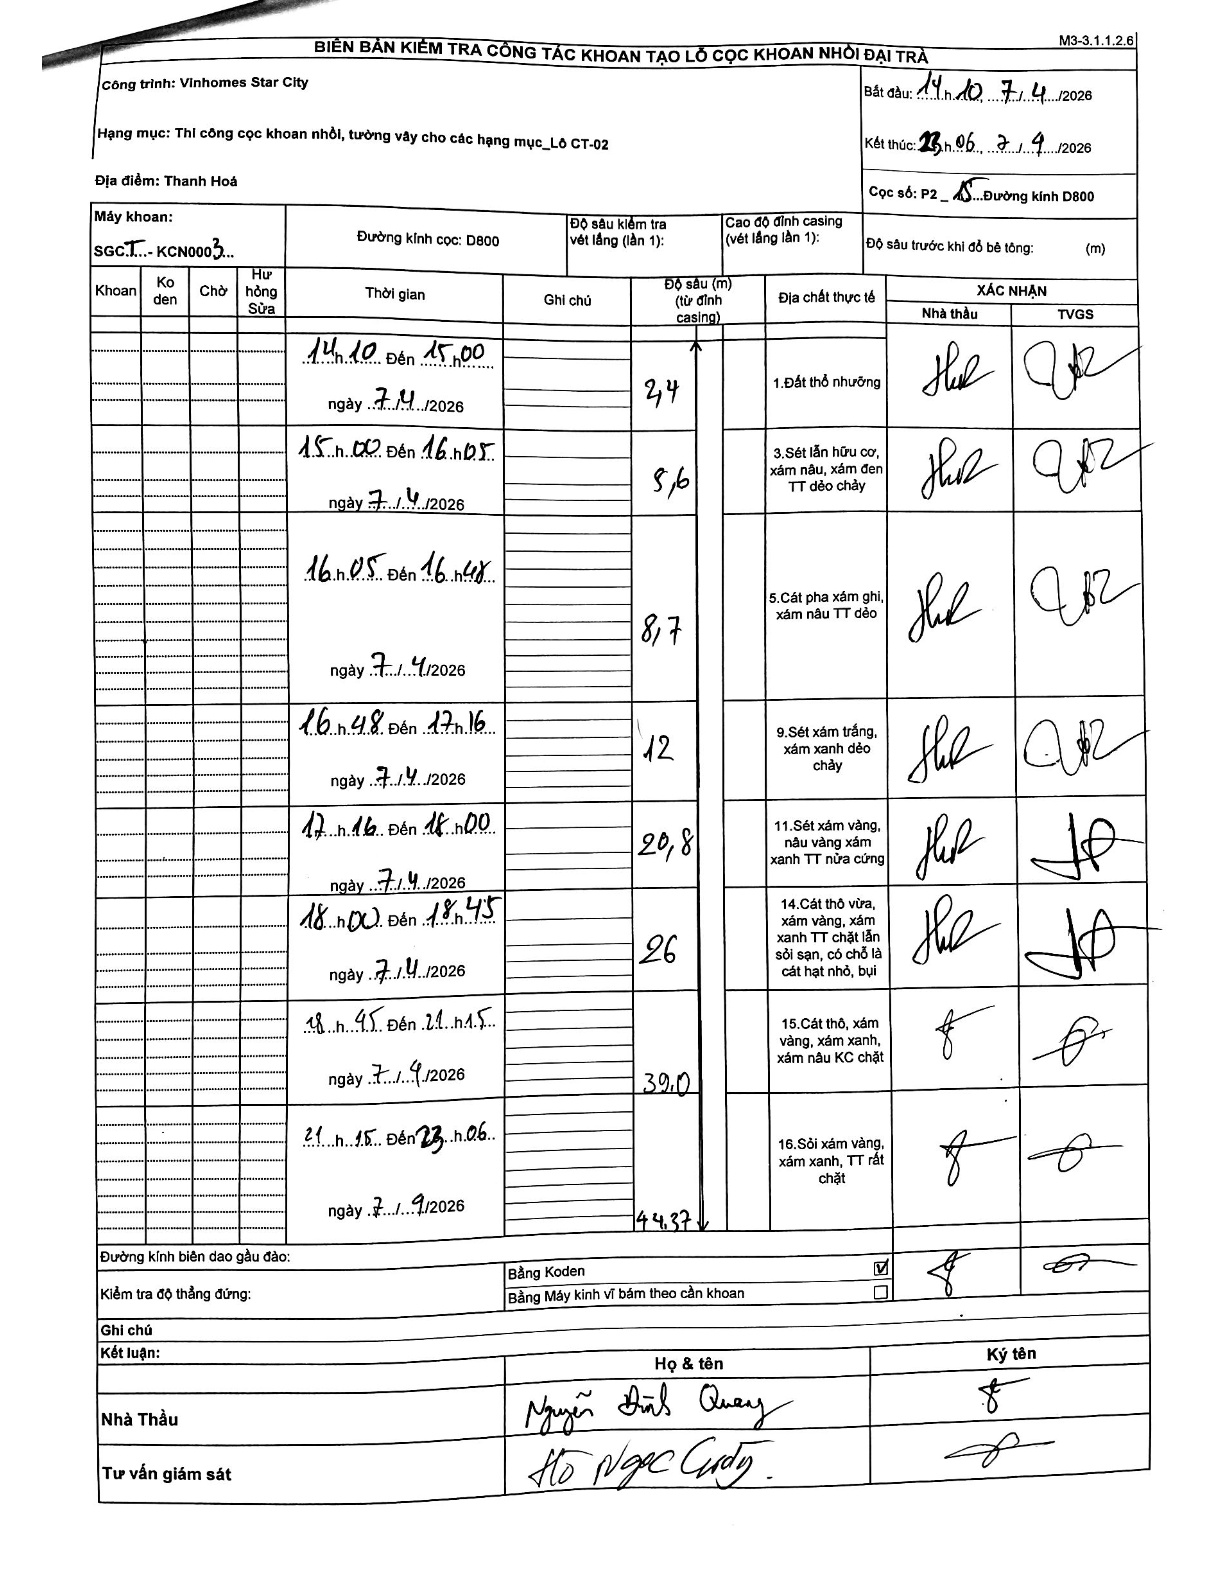 M3-3.1.1.2.6
BIÊN BẢN KIỂM TRA CÔNG TÁC KHOAN TẠO LỖ CỌC KHOAN NHỒI ĐẠI TRÀ
Công trình: Vinhomes Star City
Bắt đầu: 14 h 10, 7/4/2026
Hạng mục: Thi công cọc khoan nhồi, tường vây cho các hạng mục_Lô CT-02
Kết thúc: 23 h 06, 7/4/2026
Địa điểm: Thanh Hoá
Cọc số: P2 _ 15 Đường kính D800
Máy khoan:
SGC.T...- KCN0003...
Đường kính cọc: D800
Độ sâu kiểm tra vét lắng (lần 1):
Cao độ đỉnh casing (vét lắng lần 1):
Độ sâu trước khi đổ bê tông: (m)
Khoan Ko den Chờ Hư hỏng Sửa Thời gian Ghi chú Độ sâu (m) (từ đỉnh casing) Địa chất thực tế XÁC NHẬN
Nhà thầu TVGS
14 h 10 Đến 15 h 00
ngày 7/4/2026
2,4
1.Đất thổ nhưỡng
15 h 00 Đến 16 h 05
ngày 7/4/2026
5,6
3.Sét lẫn hữu cơ,
xám nâu, xám đen
TT dẻo chảy
16 h 05 Đến 16 h 48
ngày 7/4/2026
8,7
5.Cát pha xám ghi,
xám nâu TT dẻo
16 h 48 Đến 17 h 16
ngày 7/4/2026
12
9.Sét xám trắng,
xám xanh dẻo
chảy
17 h 16 Đến 18 h 00
ngày 7/4/2026
20,8
11.Sét xám vàng,
nâu vàng xám
xanh TT nửa cứng
18 h 00 Đến 18 h 45
ngày 7/4/2026
26
14.Cát thô vừa,
xám vàng, xám
xanh TT chặt lẫn
sỏi sạn, có chỗ là
cát hạt nhỏ, bụi
18 h 45 Đến 21 h 15
ngày 7/4/2026
39.0
15.Cát thô, xám
vàng, xám xanh,
xám nâu KC chặt
21 h 15 Đến 23 h 06
ngày 7/4/2026
44.37
16.Sỏi xám vàng,
xám xanh, TT rất
chặt
Đường kính biên dao gầu đào:
Kiểm tra độ thẳng đứng:
Bằng Koden
Bằng Máy kinh vĩ bám theo cần khoan
Ghi chú
Kết luận:
Họ & tên Ký tên
Nhà Thầu Nguyễn Đình Quang
Tư vấn giám sát Hồ Ngọc